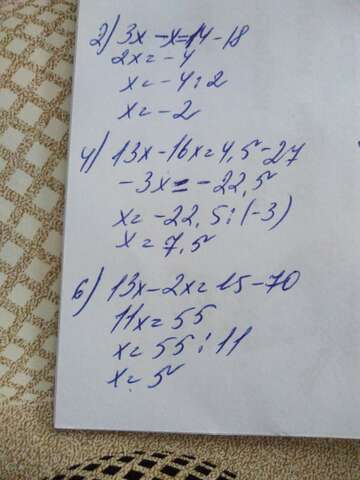 2) 3x - x = 14 - 18
2x = -4
x = -4 : 2
x = -2
4) 13x - 16x = 4,5 - 27
-3x = -22,5
x = -22,5 : (-3)
x = 7,5
6) 13x - 2x = 15 - 70
11x = 55
x = 55 : 11
x = 5